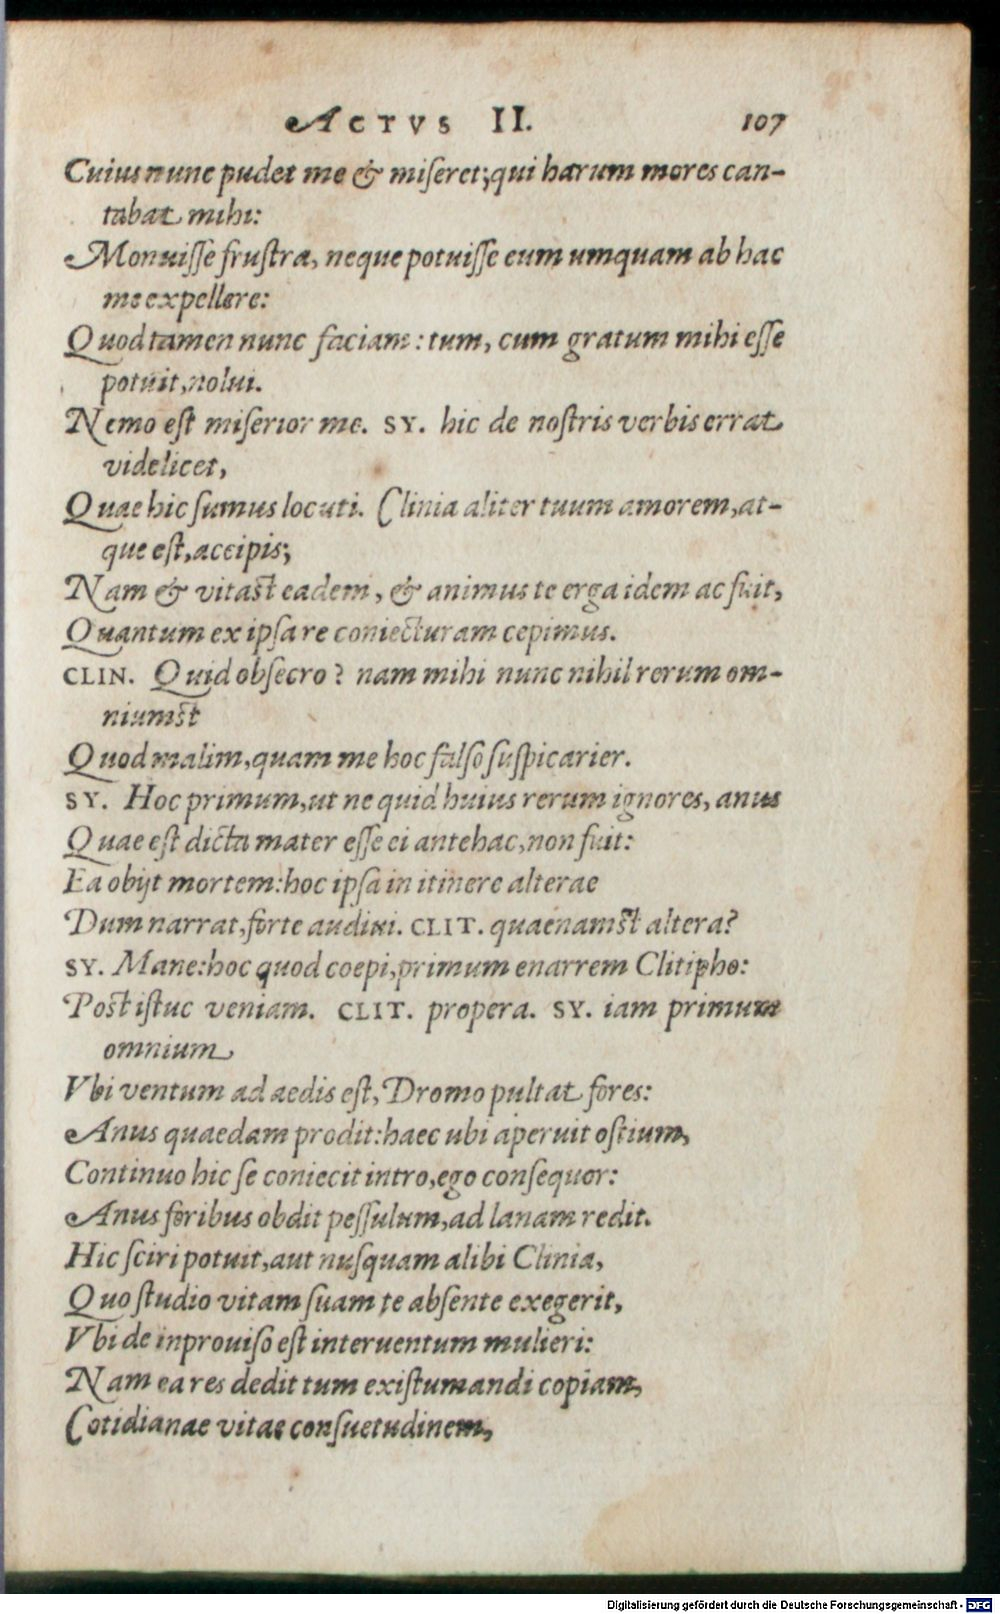 ACTVS II. 107
Cuius nunc pudet me & miseret; qui harum mores can-
tabat mihi:
Monuisse frustra, neque potuisse eum umquam ab hac
me expellere:
Quod tamen nunc faciam: tum, cum gratum mihi esse
potuit, nolui.
Nemo est miserior me. SY. hic de nostris verbis errat
videlicet,
Quae hic sumus locuti. Clinia aliter tuum amorem, at-
que est, accipis;
Nam & vitast eadem, & animus te erga idem ac fuit,
Quantum ex ipsa re coniecturam cepimus.
CLIN. Quid obsecro? nam mihi nunc nihil rerum om-
niumst
Quod malim, quam me hoc falso suspicarier.
SY. Hoc primum, ut ne quid huius rerum ignores, anus
Quae est dicta mater esse ei antehac, non fuit:
Ea obijt mortem: hoc ipsa in itinere alterae
Dum narrat, forte audivi. CLIT. quaenamst altera?
SY. Mane: hoc quod coepi, primum enarrem Clitipho:
Post istuc veniam. CLIT. propera. SY. iam primum
omnium
Vbi ventum ad aedis est, Dromo pultat fores:
Anus quaedam prodit: haec ubi aperuit ostium,
Continuo hic se coniecit intro, ego consequor:
Anus foribus obdit pessulum, ad lanam redit.
Hic sciri potuit, aut nusquam alibi Clinia,
Quo studio vitam suam te absente exegerit,
Vbi de inproviso est interventum mulieri:
Nam ea res dedit tum existumandi copiam,
Cotidianae vitae consuetudinem,
Digitalisierung gefördert durch die Deutsche Forschungsgemeinschaft - DFG